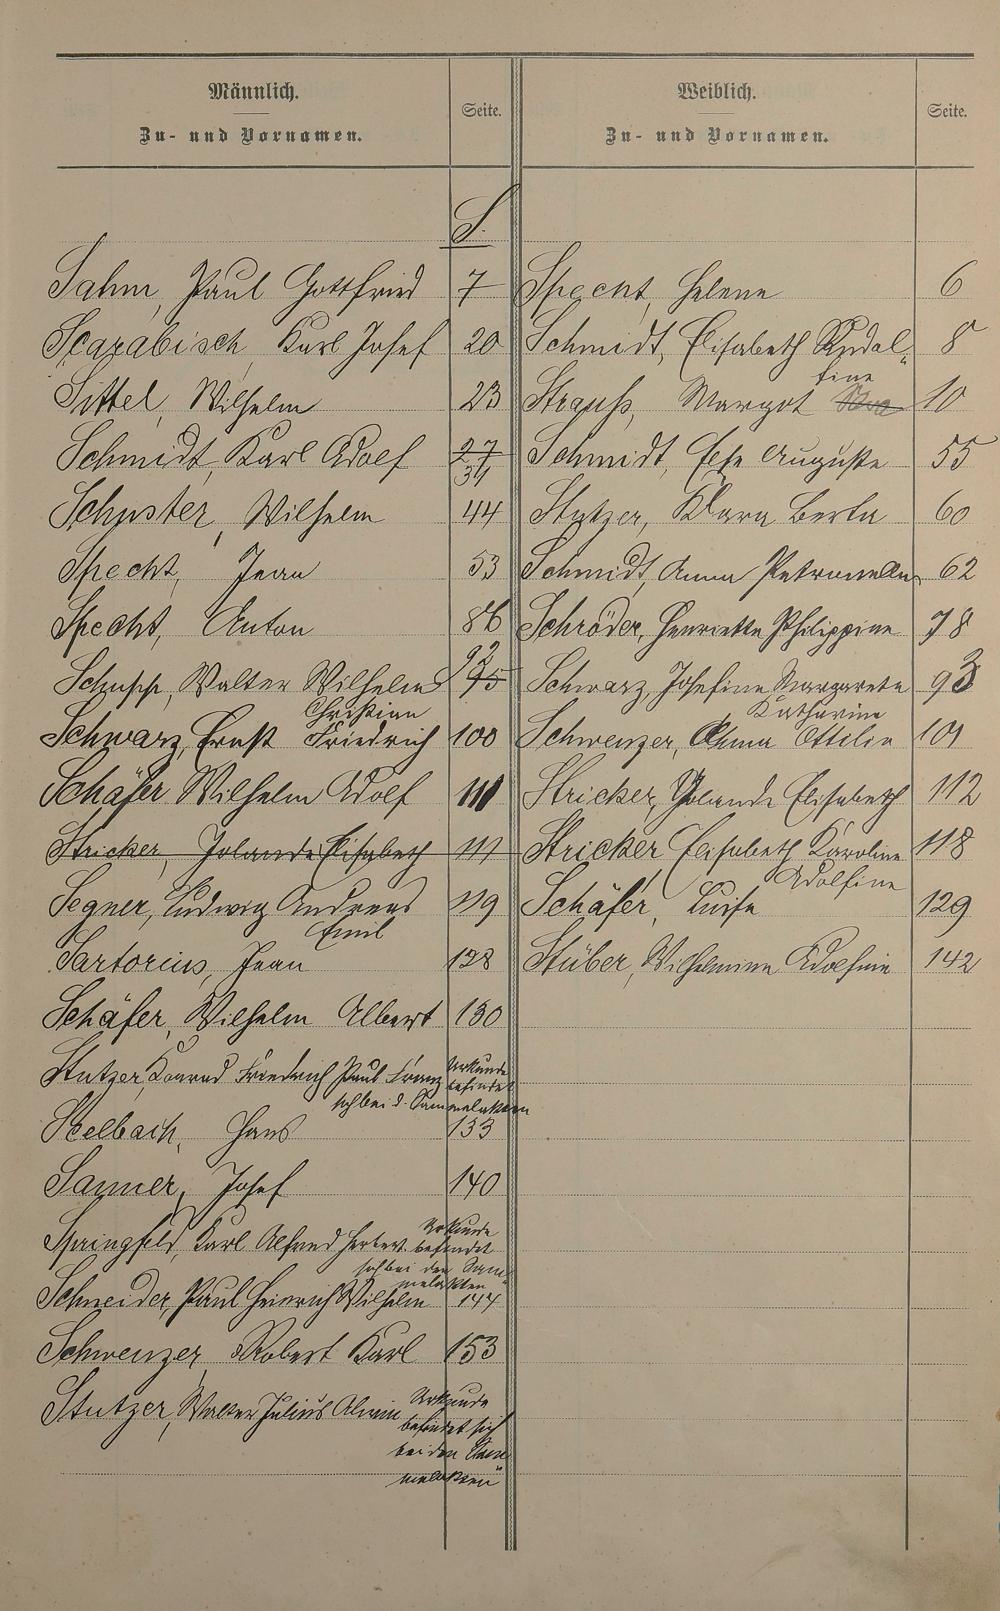 Männlich.
Zu- und Vornamen.
Seite.
S.
Sahm, Paul Gottfried 7
Scarabisch, Karl Josef 20
Sittel, Wilhelm 23
Schmidt, Karl Adolf 27
31
Schuster, Wilhelm 44
Specht, Jean 53
Specht, Anton 86
92
Schupp, Walter Wilhelm 95
Christian
Schwarz, Ernst Friedrich 100
Schäfer Wilhelm Adolf 111
Stricker, Jolande Elisabeth 111
Segner, Ludwig Andreas 119
Emil
Sartorius, Jean 128
Schäfer, Wilhelm Albert 130
Stutzer, Konrad Friedrich Paul Franz Urkunde
befindet
sich bei d. Sammelakten
Seelbach, Hans 133
Sanner, Josef 140
Springfeld, Karl Alfred Herbert. Urkunde
befindet
sich bei den Sam-
melakten
Schneider, Paul Heinrich Wilhelm 144
Schwenzer, Robert Karl 153
Stutzer, Walter Julius Alwin Urkunde
befindet sich
bei den Sam-
melakten
Weiblich.
Zu- und Vornamen.
Seite.
Specht, Helene 6
Schmidt, Elisabeth Rudol- 8
fine
Strauß, Margot 10
Schmidt, Else Auguste 55
Stutzer, Klara Berta 60
Schmidt, Anna Petronella 62
Schröder, Henriette Philippine 78
Schwarz, Josefine Margareta 93
Katharina
Schwenzer, Anna Ottilie 101
Stricker, Yolande Elisabeth 112
Stricker Elisabeth Karoline 118
Adolfine
Schäfer, Luise 129
Stüber, Wilhelmine Adolfine 142